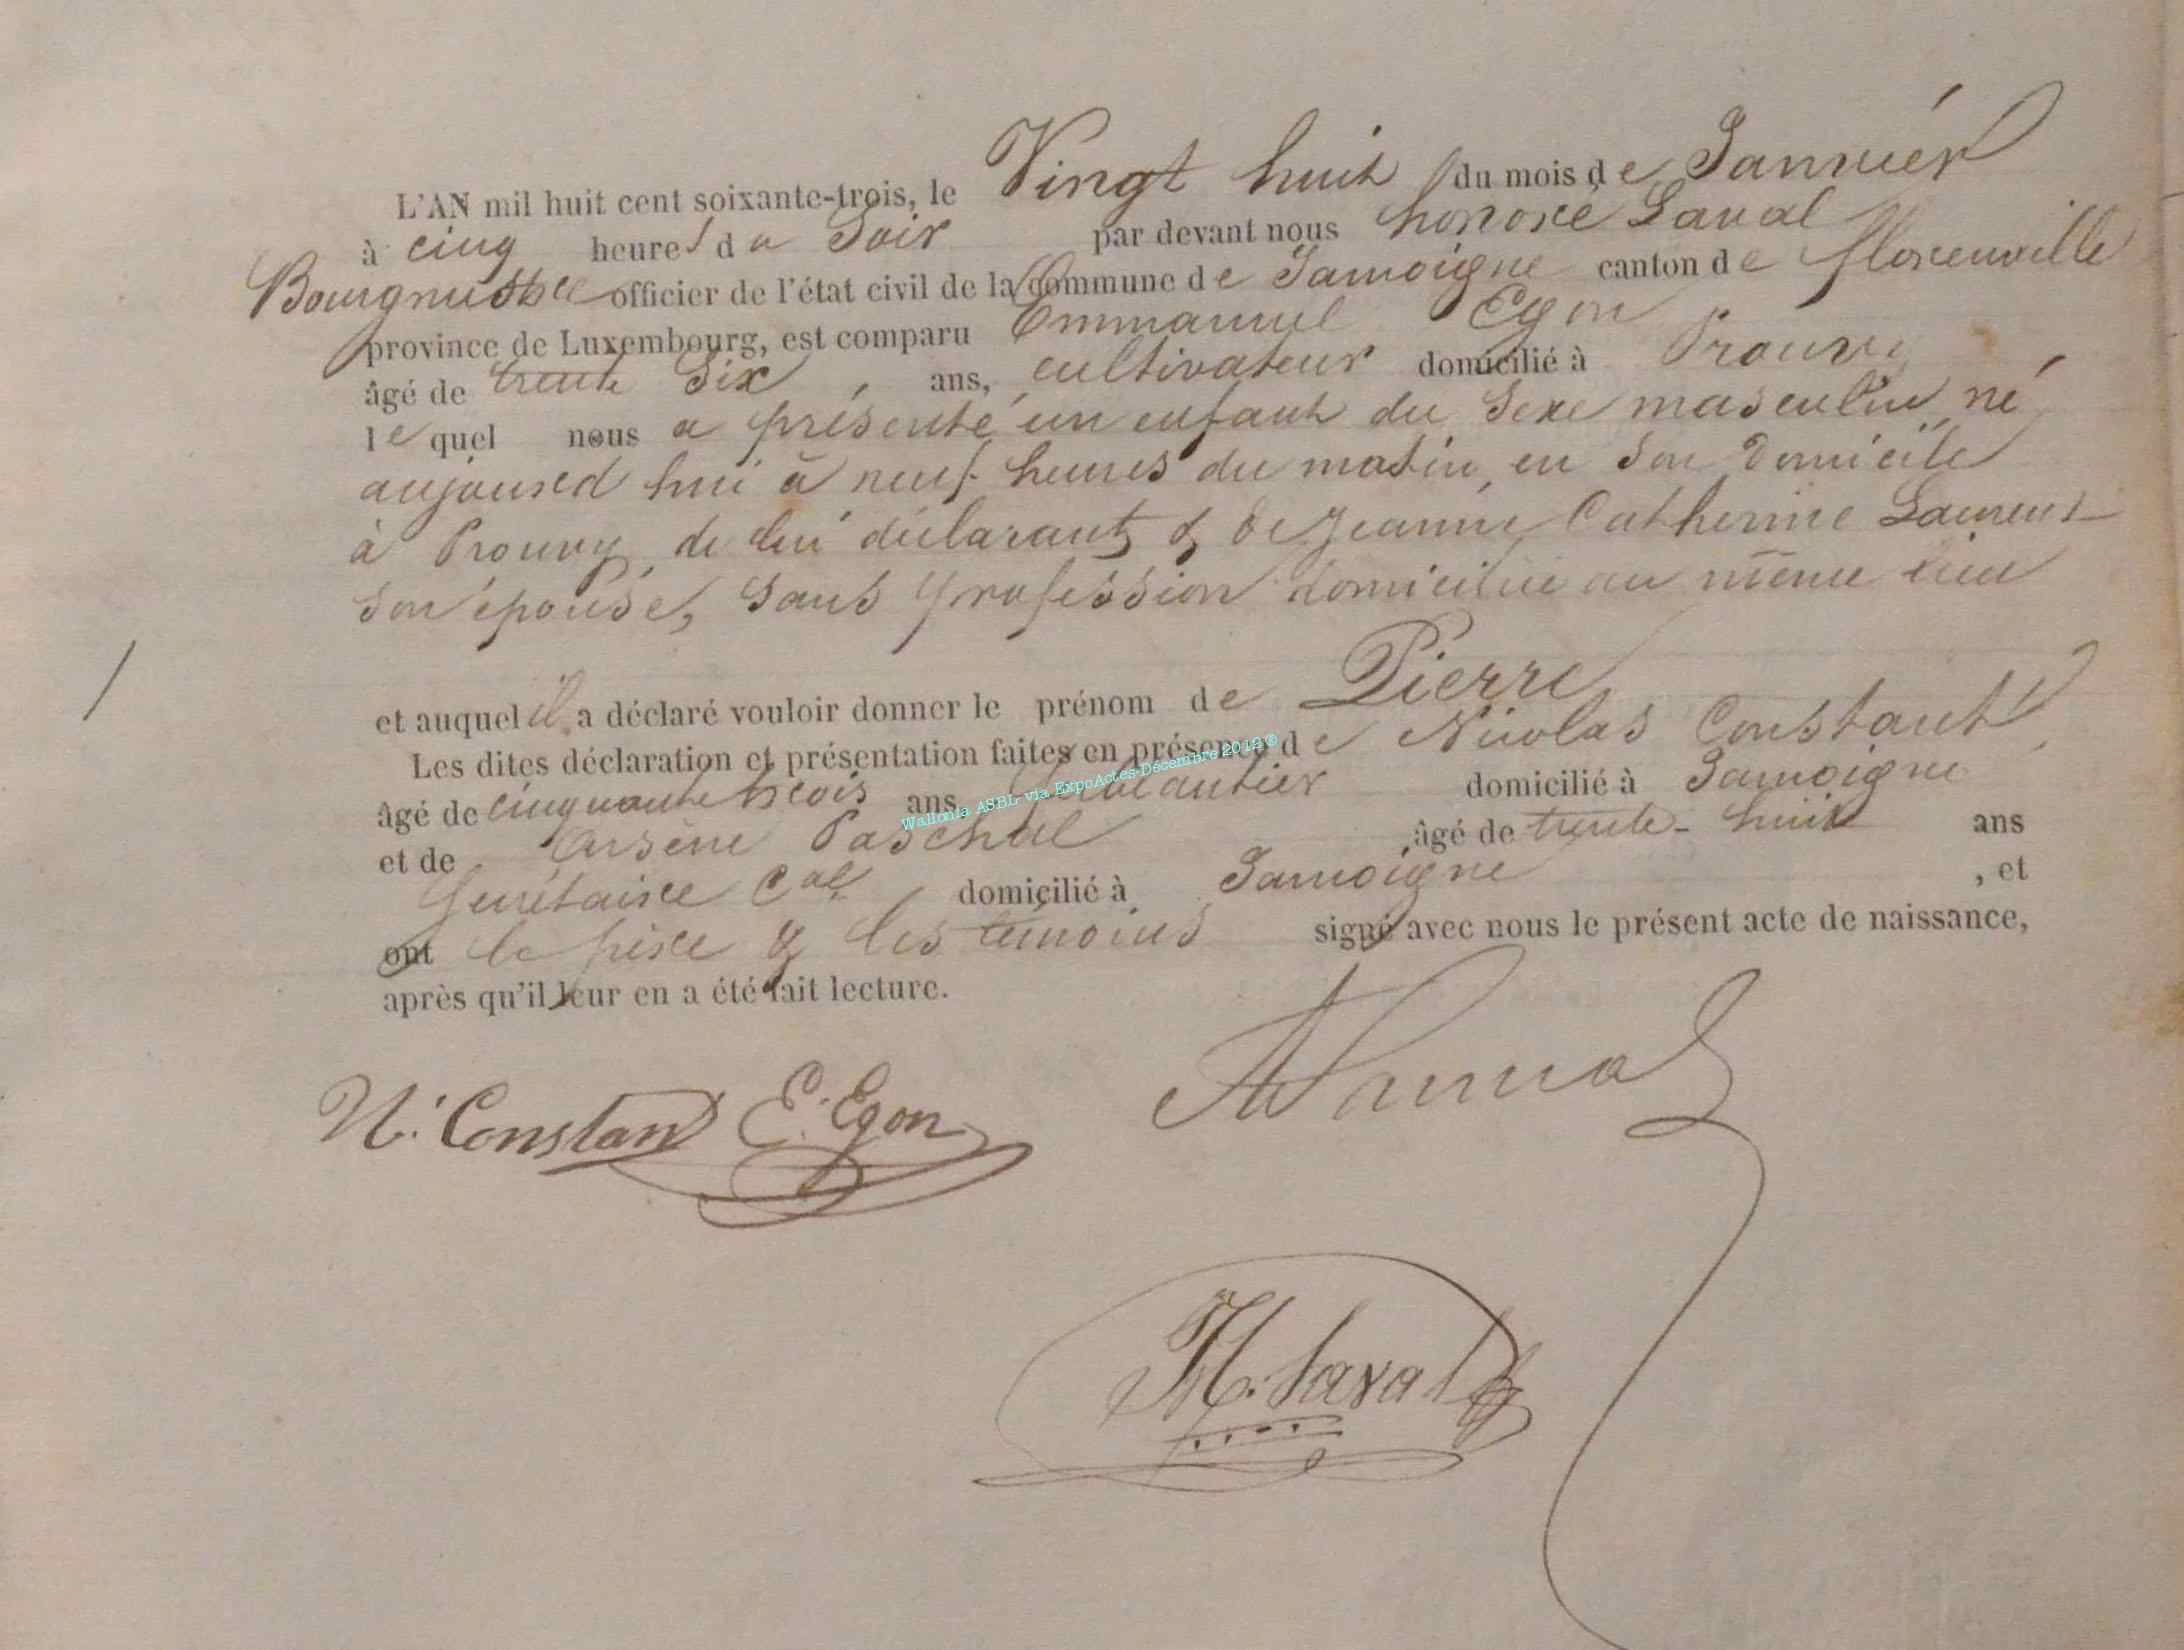 L'AN mil huit cent soixante-trois, le Vingt huit du mois de Janvier
à cinq heures du Soir par devant nous honoré Laval
Bourgmestre officier de l'état civil de la Commune de Jamoigne canton de florenville
province de Luxembourg, est comparu Emmanuel Egon
âgé de trente Six, ans, cultivateur domicilié à Prouvy
lequel nous a présenté un enfant du Sexe masculin, né
aujourd hui à neuf heures du matin, en Son Domicile
à Prouvy, de lui déclarant & de Jeanne Catherine Laurent
Son épouse, Sans profession domiciliée au même lieu
et auquel il a déclaré vouloir donner le prénom de Pierre
Les dites déclaration et présentation faites en présence de Nicolas Constant
âgé de cinquante trois ans domicilié à Jamoigne
Wallonia ASBL via ExpoActes-Décembre 2012©
et de Arsène Paschal âgé de trente-huit ans
Secrétaire Cal domicilié à Jamoigne, et
ont le père & les témoins signé avec nous le présent acte de naissance,
après qu'il leur en a été fait lecture.
N. Constan E. Egon
H. Laval